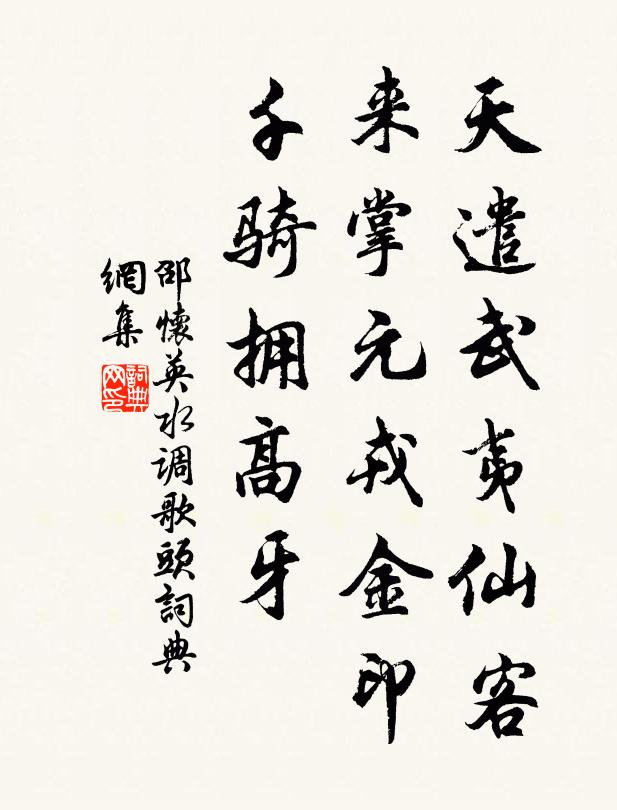 天遣武夷仙客
来掌元戎金印
千骑拥高牙
邵懷英水调歌頭詞典
網集
詞典
网印